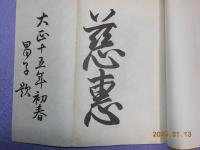 慈惠
大正十五年初春
昌子題
2009.01.13